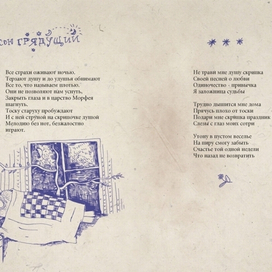 СОН ГРЯДУЩИЙ
Все страхи оживают ночью.
Терзают душу и до удушья обнимают
Все то, что называем плотью.
Они не позволяют нам уснуть,
Закрыть глаза и в царство Морфея
шагнуть,
Тоску старуху пробуждают
И с ней струной на скрипочке душой
Мелодию без нот, безжалостно
играют.
***
Не трави мне душу скрипка
Своей песней о любви
Одиночество - привычка
Я заложница судьбы
Трудно дышится мне дома
Прячусь снова от тоски
Подари мне скрипка праздник
Слезы с глаз моих сотри
Утону в пустом веселье
На пиру смогу забыть
Счастье той одной недели
Что назад не возвратить